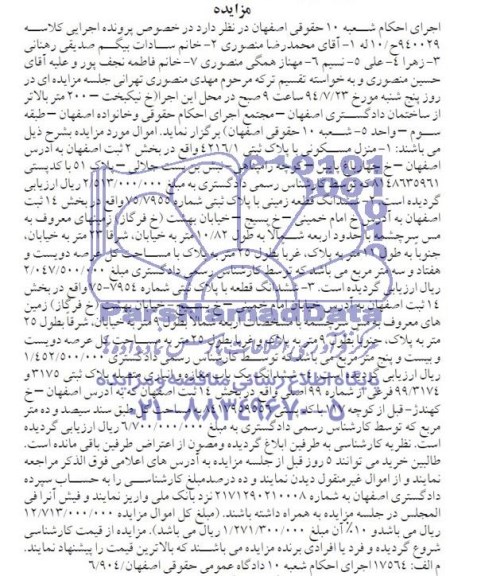 مزایده
اجرای احکام شعبه ۱۰ حقوقی اصفهان در نظر دارد در خصوص پرونده اجرایی کلاسه
۹۴۰۰۲۹ح/۱۰ له ۱- آقای محمدرضا منصوری ۲- خانم سادات بیگم صدیقی رهنانی
۳- زهرا ۴- علی ۵- نسیم ۶- مهناز همگی منصوری ۷- خانم فاطمه نجف پور و علیه آقای
حسین منصوری و به خواسته تقسیم ترکه مرحوم مهدی منصوری تهرانی جلسه مزایده ای در
روز پنج شنبه مورخ ۹۴/۷/۲۳ ساعت ۹ صبح در محل این اجرا(خ نیکبخت – ۲۰۰ متر بالاتر
از ساختمان دادگستری اصفهان – مجتمع اجرای احکام حقوقی وخانواده اصفهان – طبقه
سوم – واحد ۵- شعبه ۱۰ حقوقی اصفهان) برگزار نماید. اموال مورد مزایده بشرح ذیل
می باشند: ۱- منزل مسکونی با پلاک ثبتی ۴۲۱۶/۱ واقع در بخش ۲ ثبت اصفهان به آدرس
اصفهان – خ چهارباغ – کوچه – نبش بن بست جلالی – پلاک ۵۱ با کدپستی
۸۱۴۸۶۳۵۹۶۱ که توسط کارشناس رسمی دادگستری به مبلغ ۲/۵۱۳/۰۰۰/۰۰۰ ریال ارزیابی
گردیده است. ۲- ششدانگ قطعه زمینی با پلاک ثبتی شماره ۷۵/۷۹۵۵ واقع در بخش ۱۴ ثبت
اصفهان به آدرس خ امام خمینی – خ بسیج – خیابان بهشت (خ فرگاز) زمینهای معروف به
مس سرچشمه با حدود اربعه شمالا به طول ۱۰/۸۲ متر به خیابان، شرقا ۲۳ متر به خیابان،
جنوبا به طول متر به پلاک، غربا بطول ۲۵ متر به پلاک با مساحت کل عرصه دویست و
هفتاد و سه متر مربع می باشد که توسط کارشناس رسمی دادگستری مبلغ ۲/۰۴۷/۵۰۰/۰۰۰
ریال ارزیابی گردیده است. ۳- ششدانگ قطعه با پلاک ثبتی شماره ۷۹۵۴-۷۵ واقع در بخش
۱۴ ثبت اصفهان به آدرس خیابان امام خمینی – خ – خیابان بهشت (خ فرگاز) زمین
های معروف به مس سرچشمه با مشخصات اربعه شمالا بطول ۹ متر به خیابان، شرقا بطول ۲۵
متر به پلاک، جنوبا بطول ۹ متر به پلاک و غربا بطول متر به مساحت کل عرصه دویست
و بیست و پنج متر مربع می باشد که توسط کارشناس رسمی دادگستری ۱/۴۵۲/۵۰۰/۰۰۰
ریال ارزیابی گردیده است. ۴- ششدانگ یک باب مغازه و انباری متصله پلاک ثبتی ۳۱۷۵ و
۹۹/۳۱۷۴ فرعی از شماره ۹۹ اصلی واقع در بخش ۱۴ ثبت اصفهان که به آدرس اصفهان – خ
کهندژ- قبل از کوچه با کد پستی ۸۱۷۹۵۹۵۵ به مساحت طبق سند سیصد و ده متر
مربع که توسط کارشناس رسمی دادگستری به مبلغ ۶/۷۰۰/۰۰۰/۰۰۰ ریال ارزیابی گردیده
است. نظریه کارشناسی به طرفین ابلاغ گردیده ومصون از اعتراض طرفین باقی مانده است.
طالبین خرید می توانند ۵ روز قبل از جلسه مزایده به آدرس های اعلامی فوق الذکر مراجعه
نمایند و از اموال غیرمنقول دیدن نمایند و ده درصدمبلغ کارشناسی را به حساب سپرده
دادگستری اصفهان به شماره ۲۱۷۱۲۹۰۲۱۰۰۰۸ نزد بانک ملی واریز نمایند و فیش آنرا فی
المجلس در جلسه مزایده به همراه داشته باشند. (مبلغ کل اموال مزایده ۱۲/۷۱۳/۰۰۰/۰۰۰
ریال می باشد و ۱۰٪ آن مبلغ ۱/۲۷۱/۳۰۰/۰۰۰ ریال می باشد). مزایده از قیمت کارشناسی
شروع گردیده و فرد یا افرادی برنده مزایده می باشند که بالاترین قیمت را پیشنهاد نمایند.
م الف: ۱۷۵۶۴ اجرای احکام شعبه ۱۰ دادگاه عمومی حقوقی اصفهان/۶/۹۰۴
ParsNamadData
پایگاه اطلاع رسانی مناقصه و مزایده
۰۲۱-۸۸۳۴۹۶۷۰-۵